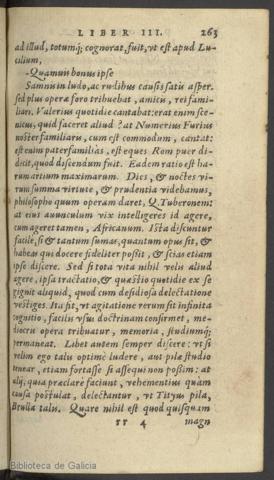 LIBER III. 263
ad illud, totumq; cognorat, fuit, vt est apud Lu-
cilium,
-Quamuis bonus ipse
Samnis in ludo, ac rudibus causis satis asper.
sed plus operæ foro tribuebat, amicis, rei fami-
liari. Valerius quotidie cantabat: erat enim sce-
nicus, quid faceret aliud? at Numerius Furius
noster familiaris, cum est commodum, cantat:
est enim paterfamilias, est eques Rom puer di-
dicit, quod discendum fuit. Eadem ratio est ha-
rum artium maximarum. Dies, & noctes vi-
rum summa virtute, & prudentia videbamus,
philosopho quum operam daret, Q. Tuberonem:
at eius auunculum vix intelligeres id agere,
cum ageret tamen, Africanum. Ista discuntur
facile, si & tantum sumas, quantum opus sit, &
habeas qui docere fideliter possit, & scias etiam
ipse discere. Sed si tota vita nihil velis aliud
agere, ipsa tractatio, & quæstio quotidie ex se
gignit aliquid, quod cum desidiosa delectatione
vestiges. Ita fit, vt agitatione rerum sit infinita
cognitio, facilis vsus doctrinam confirmet, me-
diocris opera tribuatur, memoria, studiumq;
permaneat. Libet autem semper discere: vt si
velim ego talis optimè ludere, aut pilæ studio
tenear, etiam fortasse si assequi non possim: at
alij, quia præclare faciunt, vehementius quam
causa postulat, delectantur, vt Tityus pila,
Brulla talis. Quare nihil est quod quisquam
rr 4 magn
Biblioteca de Galicia